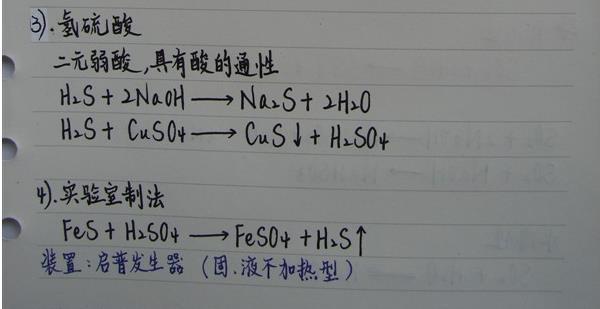 3).氢硫酸
二元弱酸,具有酸的通性
H₂S + 2NaOH ⟶ Na₂S + 2H₂O
H₂S + CuSO₄ ⟶ CuS↓ + H₂SO₄
4).实验室制法
FeS + H₂SO₄ ⟶ FeSO₄ + H₂S↑
装置:启普发生器 (固.液不加热型)